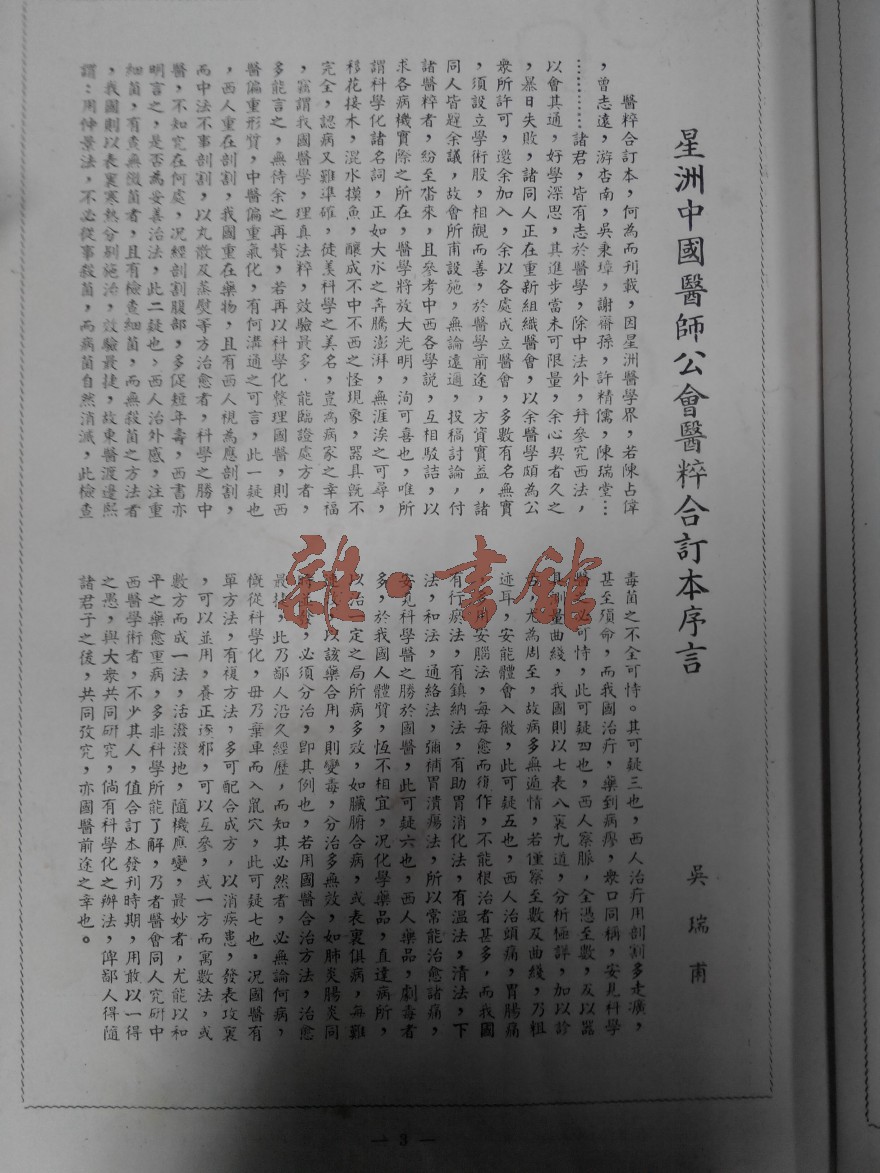 星洲中國醫師公會醫粹合訂本序言
吳瑞甫
醫粹合訂本，何為而刊載，因星洲醫學界，若陳占偉
，曾志遠，游杏南，吳秉璋，謝齋孫，許精儒，陳瑞堂…
…………諸君，皆有志於醫學，除中法外，幷參究西法，
以會其通，好學深思，其進步當未可限量，余心契者久之
，暴日失敗，諸同人正在重新組織醫會，以余醫學頗為公
衆所許可，邀余加入，余以各處成立醫會，多數有名無實
，須設立學術股，相觀而善，於醫學前途，方資實益，諸
同人皆韙余議，故會所甫設施，無論遠適，投稿討論，付
諸醫粹者，紛至沓來，且參考中西各學說，互相駁詰，以
求各病機實際之所在，醫學將放大光明，洵可喜也，唯所
謂科學化諸名詞，正如大水之奔騰澎湃，無涯涘之可尋，
移花接木，混水摸魚，釀成不中不西之怪現象，器具旣不
完全，認病又難準確，徒羨科學之美名，豈為病家之幸福
，竊謂我國醫學，理真法粹，效驗最多．能臨證處方者，
多能言之，無待余之再贅，若再以科學化整理國醫，則西
醫偏重形質，中醫偏重氣化，有何溝通之可言，此一疑也
，西人重在剖割，我國重在藥物，且有西人視為應剖割，
而中法不事剖割，以丸散及蒸熨等方治愈者，科學之勝中
醫，不知究在何處，况經剖割腹部，多促短年壽，西書亦
明言之，是否為妥善治法，此二疑也，西人治外感，注重
細菌，有查無微菌者，且有檢查細菌，而無殺菌之方法者
，我國則以表裏寒熱分別施治，效驗最捷，故東醫渡邊熙
謂：用仲景法，不必從事殺菌，而病菌自然消滅，此檢查
毒菌之不全可恃。其可疑三也，西人治疔用剖割多走濱，
甚至殞命，而我國治疔，藥到病瘳，衆口同稱，安見科學
醫之可恃，此可疑四也，西人察脈，全憑至數，及以器
具測量曲綫，我國則以七表八裏九道，分析極詳，加以診
舌，尤為周至，故病多無遁情，若僅察至數及曲綫，乃粗
迹耳，安能體會入微，此可疑五也，西人治頭痛，胃腸痛
，用安腦法，每每愈而復作，不能根治者甚多，而我國
有行瘀法，有鎮納法，有助胃消化法，有溫法，清法，下
法，和法，通絡法，彌補胃潰瘍法，所以常能治愈諸痛，
安見科學醫之勝於國醫，此可疑六也，西人藥品，劇毒者
多，於我國人體質，恆不相宜，况化學藥品，直達病所，
以治一定之局所病多效，如臟腑合病，或表裏俱病，每難
以該藥合用，則變毒，分治多無效，如肺炎腸炎同
，必須分治，卽其例也，若用國醫合治方法，治愈
最捷，此乃鄙人沿久經歷，而知其必然者，必無論何病，
慨從科學化，毋乃棄車而入鼠穴，此可疑七也。况國醫有
單方法，有複方法，多可配合成方，以消疾患，發表攻裏
，可以並用，養正逐邪，可以互參，或一方而寓數法，或
數方而成一法，活潑潑地，隨機應變，最妙者，尤能以和
平之藥愈重病，多非科學所能了解，乃者醫會同人究研中
西醫學術者，不少其人，值合訂本發刊時期，用敢以一得
之愚，與大衆共同研究，倘有科學化之辦法，俾鄙人得隨
諸君子之後，共同攷究，亦國醫前途之幸也。
雜·書館
— 3 —